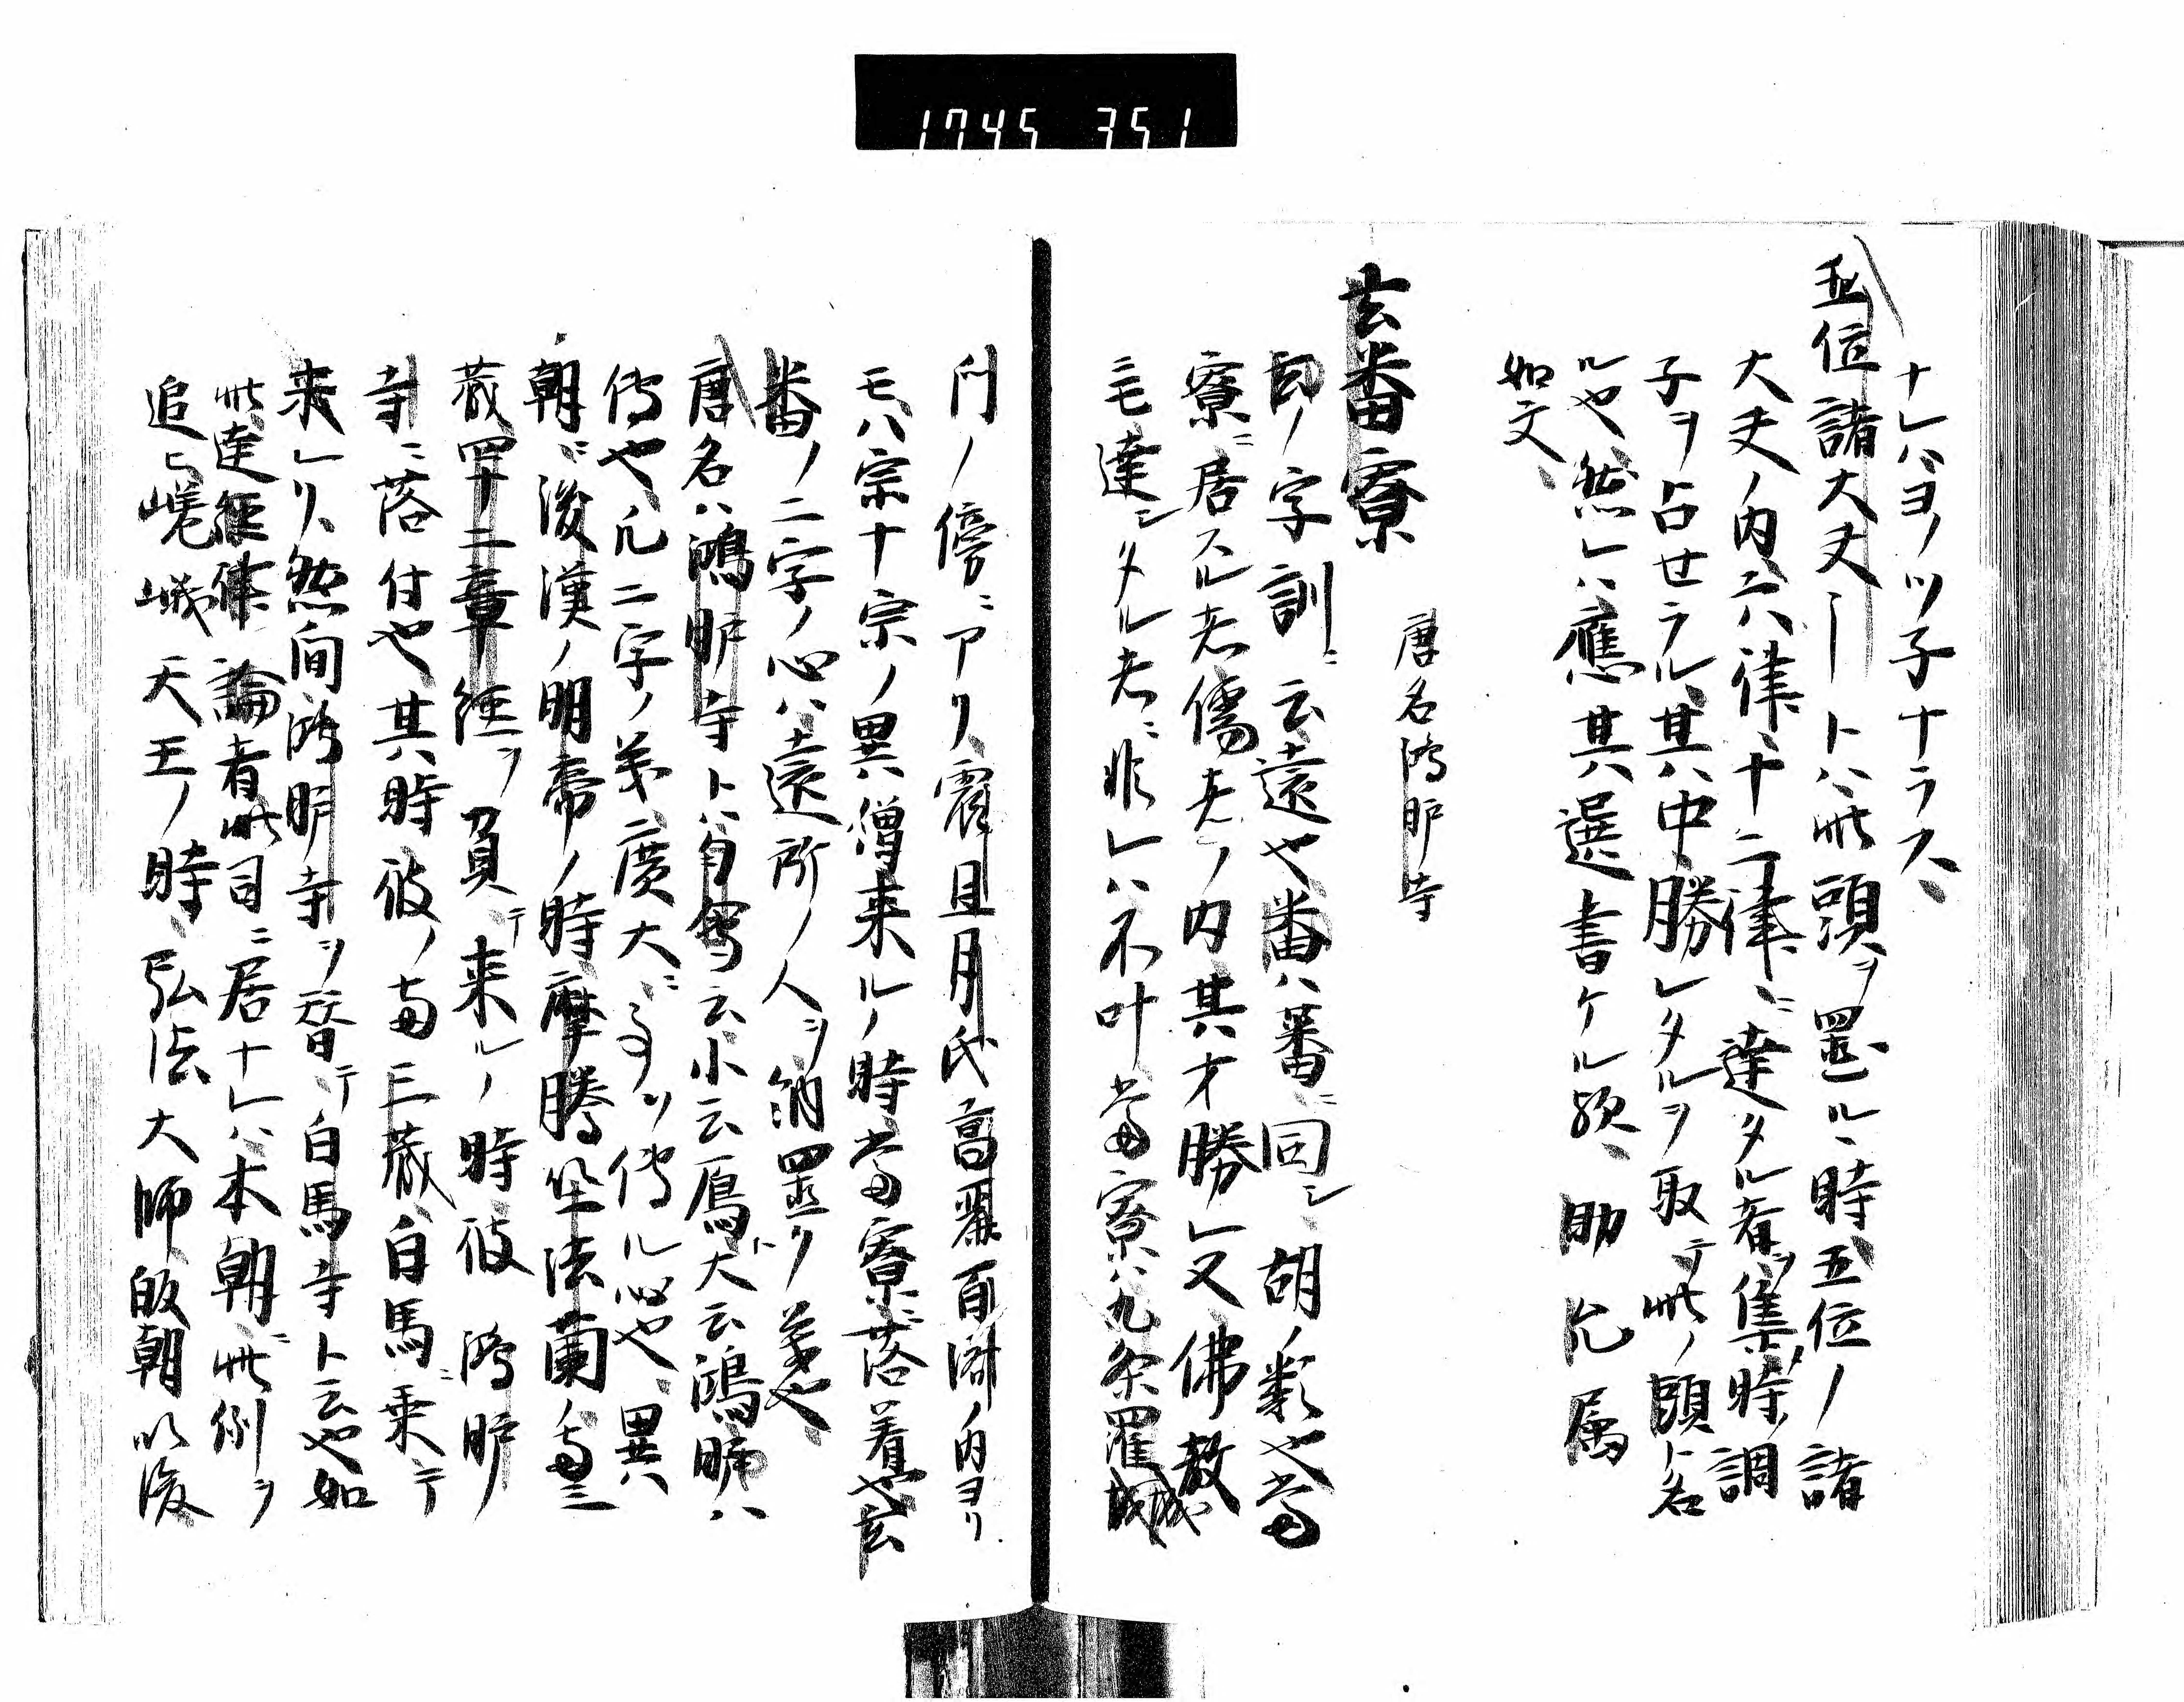 1745 351
ナレハヨノツ子ナラス、
五位諸大夫ートハ此頭ヲ置ル、時五位ノ諸
大夫ノ内六律、十二律ニ達タル者ヲ集時ノ調
子ヲ占せラル、其中勝レタルヲ取テ此ノ頭ト名
ルや然レハ應其選書ケル歟、助允属
如文、
玄番寮 唐名鴻臚寺
玄ノ字訓ニ云遠や番ハ蕃ニ同シ胡ノ類や當
寮ニ居スル者儒者ノ内其才勝レ又佛教
ニモ達シタル者ニ非レハ不叶當寮ハ九条羅城
門ノ傍ニアリ震旦月氏高麗百済ノ内ヨリ
モ八宗十宗ノ異僧来ルノ時當寮ニ落着や玄
番ノ二字ノ心ハ遠所ノ人ヲ納置ク義や、
唐名ハ鴻臚寺トハ有鳥云小云鳫ト大云鴻臚ハ
傳や凡二字ノ義廣大ニヲツ傳ル心や、異
朝ニ後漢ノ明帝ノ時摩騰竺法蘭ノ両三
蔵四十二章経ヲ負テ来ルノ時彼鴻臚
寺ニ落付や其時彼ノ両三蔵白馬ニ乗テ
来レリ然間鴻臚寺ヲ替テ白馬寺ト云や如
此達経律論者此司ニ居ナレハ本朝ニ此例ヲ
追ヒ嵯峨天王ノ時、弘法大師皈朝以後